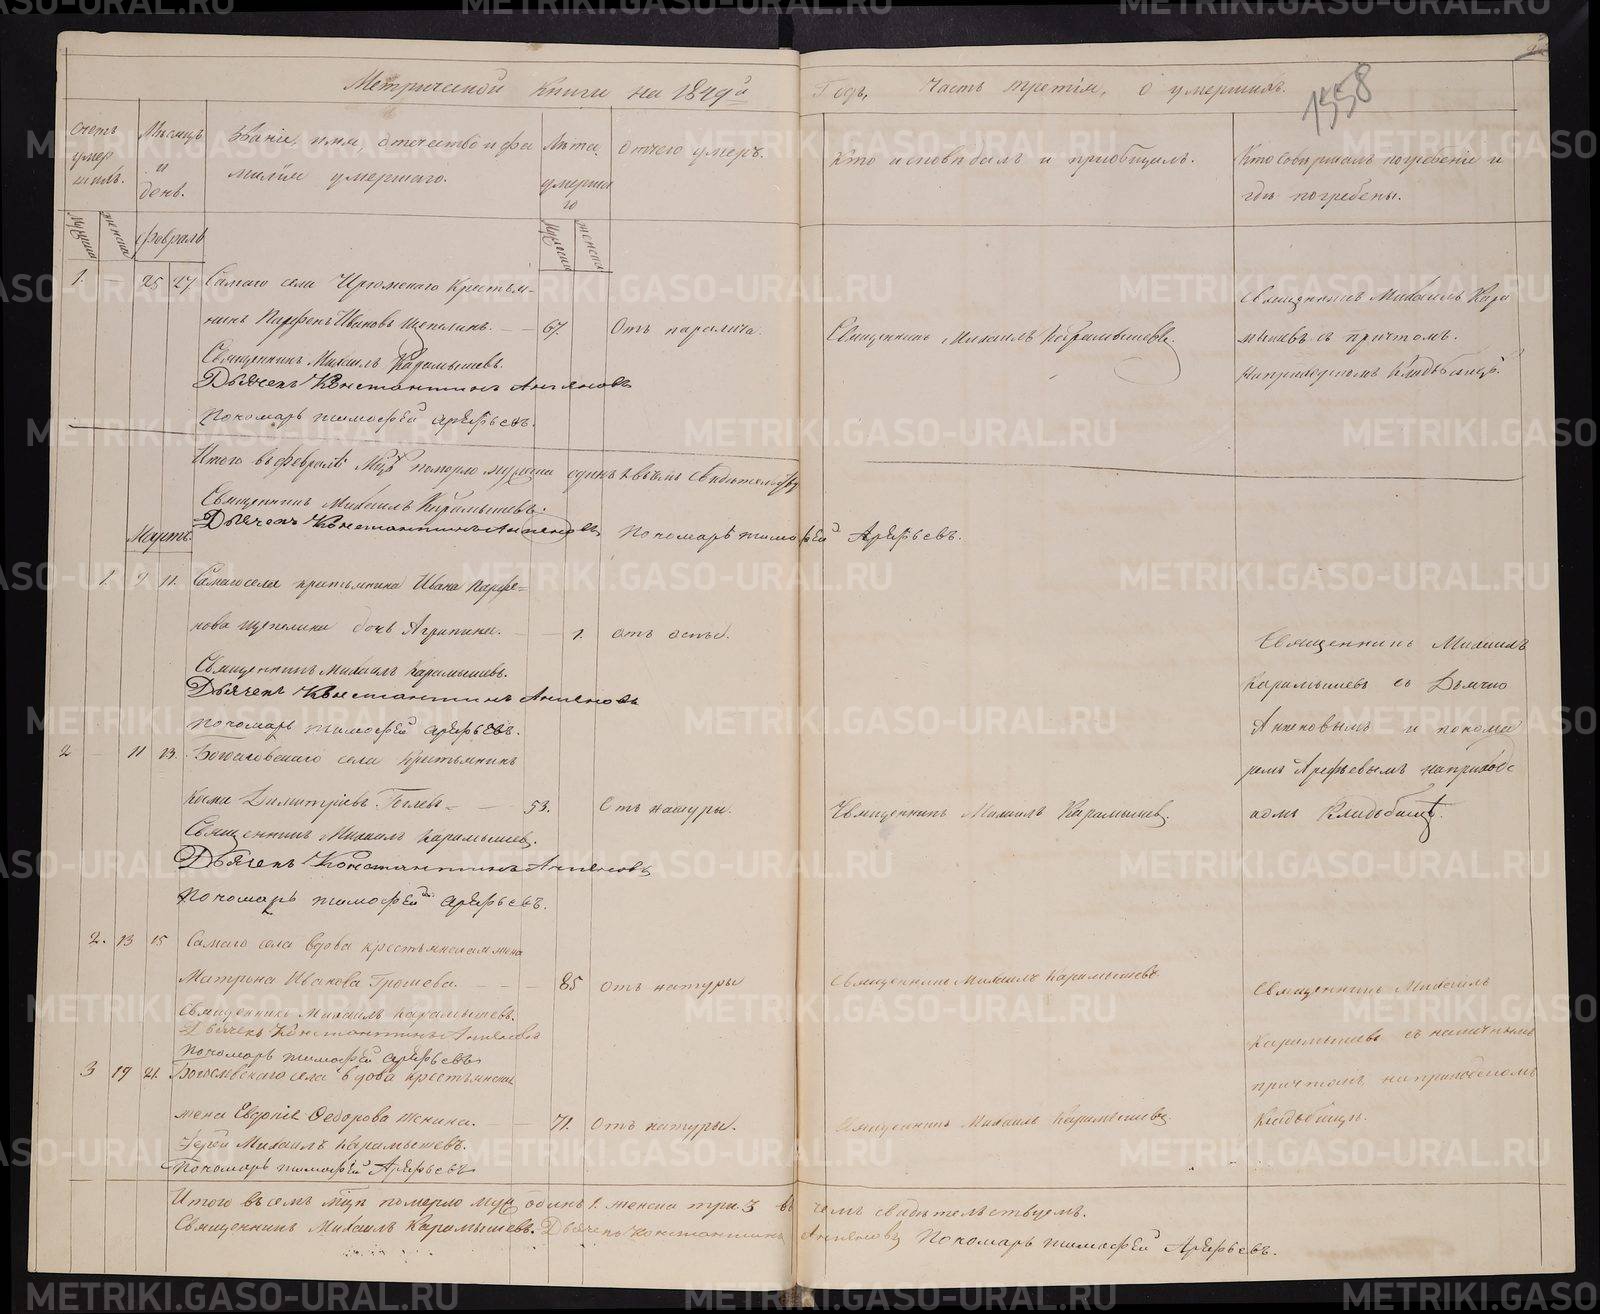 Метрической книги на 1849й Годъ, Часть третія, о умершихъ.
1558
Счетъ умершихъ.
Мѣсяцъ и день.
Званіе, имя, отечество и фамилія умершаго.
Лѣта умершаго
Отчего умеръ.
Кто исповѣдалъ и приобщалъ.
Кто совершалъ погребеніе и гдѣ погребены.
Мужска
женска
Февраль
Мужска
женска
1. — 25 27 Самаго села Иргюмскаго Крестья-
нинъ Парфенъ Ивановъ Щепелинъ. — 67. Отъ паралича. Священникъ Михаилъ Карамышевъ.
Священникъ Михаилъ Кара
мышевъ съ причтомъ.
На приходскомъ Кладбищѣ.
Священникъ Михаилъ Карамышевъ.
Дьячекъ Константинъ
Пономарь Тимофей Арефьевъ.
Итого въ Февралѣ Мцѣ померло мужска одинъ 1. въ чемъ свидѣтельству
Священникъ Михаилъ Карамышевъ.
Дьячекъ Константинъ Пономарь Тимофей Арефьевъ.
Мартъ.
1. 9 11. Самаго села крестьянина Ивана Парфе-
нова Щепелина дочь Агрипина. — 1. отъ оспы.
Священникъ Михаилъ Карамышевъ.
Дьячекъ Константинъ
Пономарь Тимофей Арефьевъ.
Священникъ Михаилъ
Карамышевъ съ Дьячко
и понома
ремъ Арефьевымъ на приходс
комъ Кладбищѣ.
2 — 11 13. села Крестьянинъ
Козма Димитріевъ — 53. Отъ натуры. Священникъ Михаилъ Карамышевъ.
Священникъ Михаилъ Карамышевъ.
Дьячекъ Константинъ
Пономарь Тимофей Арефьевъ.
2. 13 15 Самаго села вдова крестьянская жена
Матрона Иванова Грошева. — 85 отъ натуры Священникъ Михаилъ Карамышевъ.
Священникъ Михаилъ Карамышевъ.
Дьячекъ Константинъ
Пономарь Тимофей Арефьевъ
Священникъ Михаилъ
Карамышевъ съ
причтомъ на приходскомъ
Кладбищѣ.
3 19 21. села вдова крестьянская
жена Евдокія Федорова — 71. Отъ натуры. Священникъ Михаилъ Карамышевъ.
Іерей Михаилъ Карамышевъ.
Пономарь Тимофей Арефьевъ
Итого въ семъ мцѣ померло муж. одинъ 1. женска три 3 въ чемъ свидѣтельствуемъ.
Священникъ Михаилъ Карамышевъ. Дьячекъ Константинъ Пономарь Тимофей Арефьевъ.
METRIKI.GASO-URAL.RU